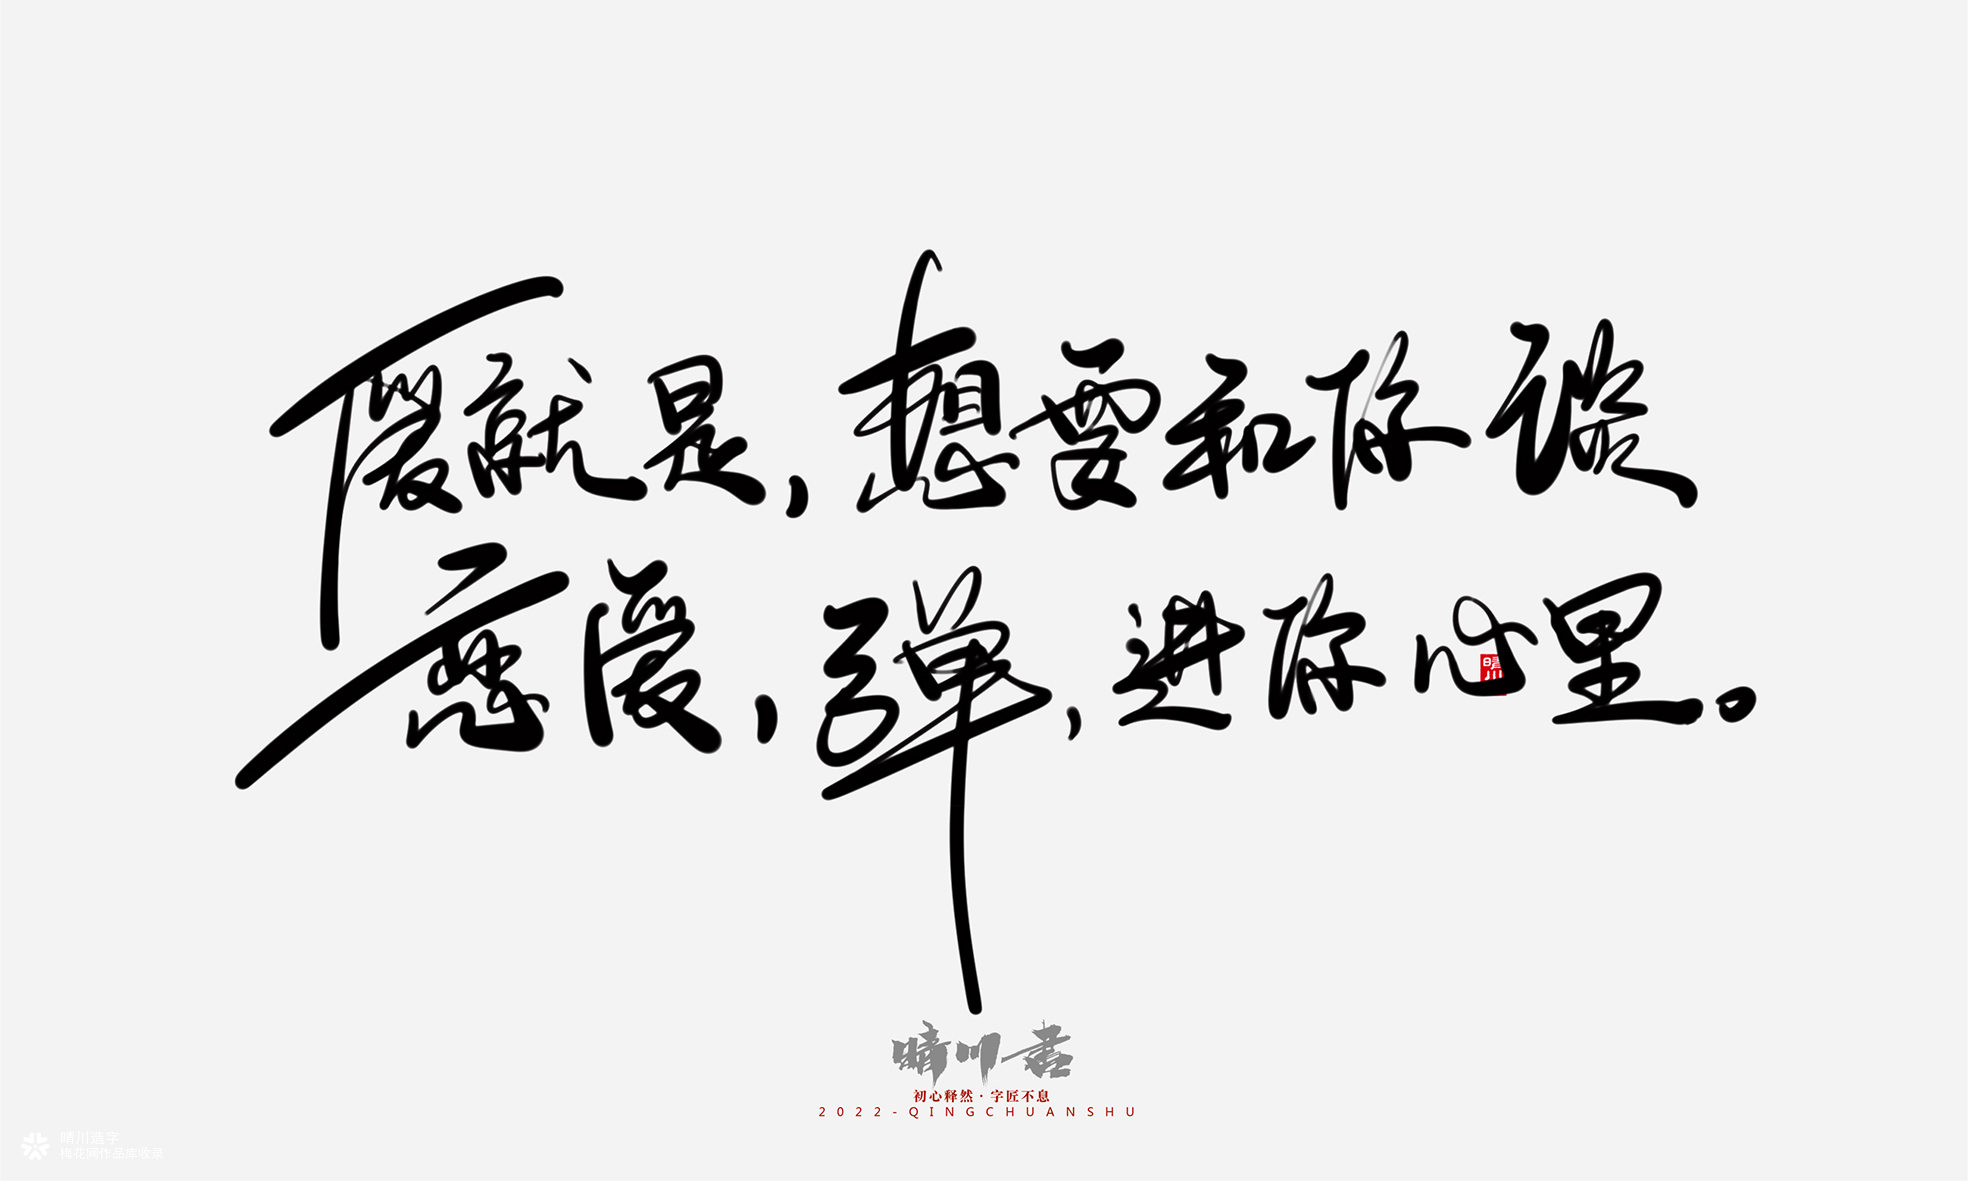 爱就是，想要和你谈
恋爱，弹，进你心里。
晴川
晴川書
初心释然·字匠不息
2022-QINGCHUANSHU
晴川造字
梅花网作品库收录